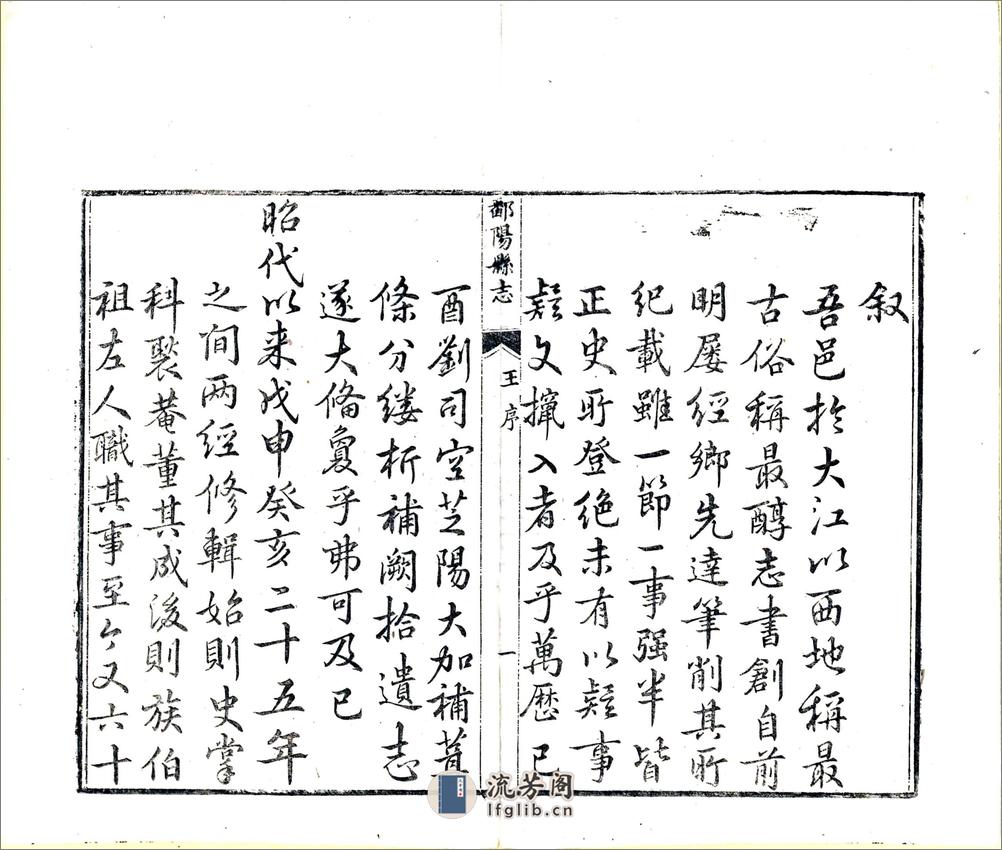 叙
吾邑於大江以西地稱最
古俗稱最醇志書創自前
明屢經鄉先達筆削其所
紀載雖一節一事强半皆
正史所登絕未有以疑事
疑文攛入者及乎萬歷已
鄱陽縣志
王序
一
酉劉司空芝陽大加補葺
條分縷析補闕拾遺志
遂大備敻乎弗可及已
昭代以来戊申癸亥二十五年
之间两經修輯始則史掌
科聚菴董其成後則族伯
祖左人職其事至今又六十
流芳阁
lfglib.cn